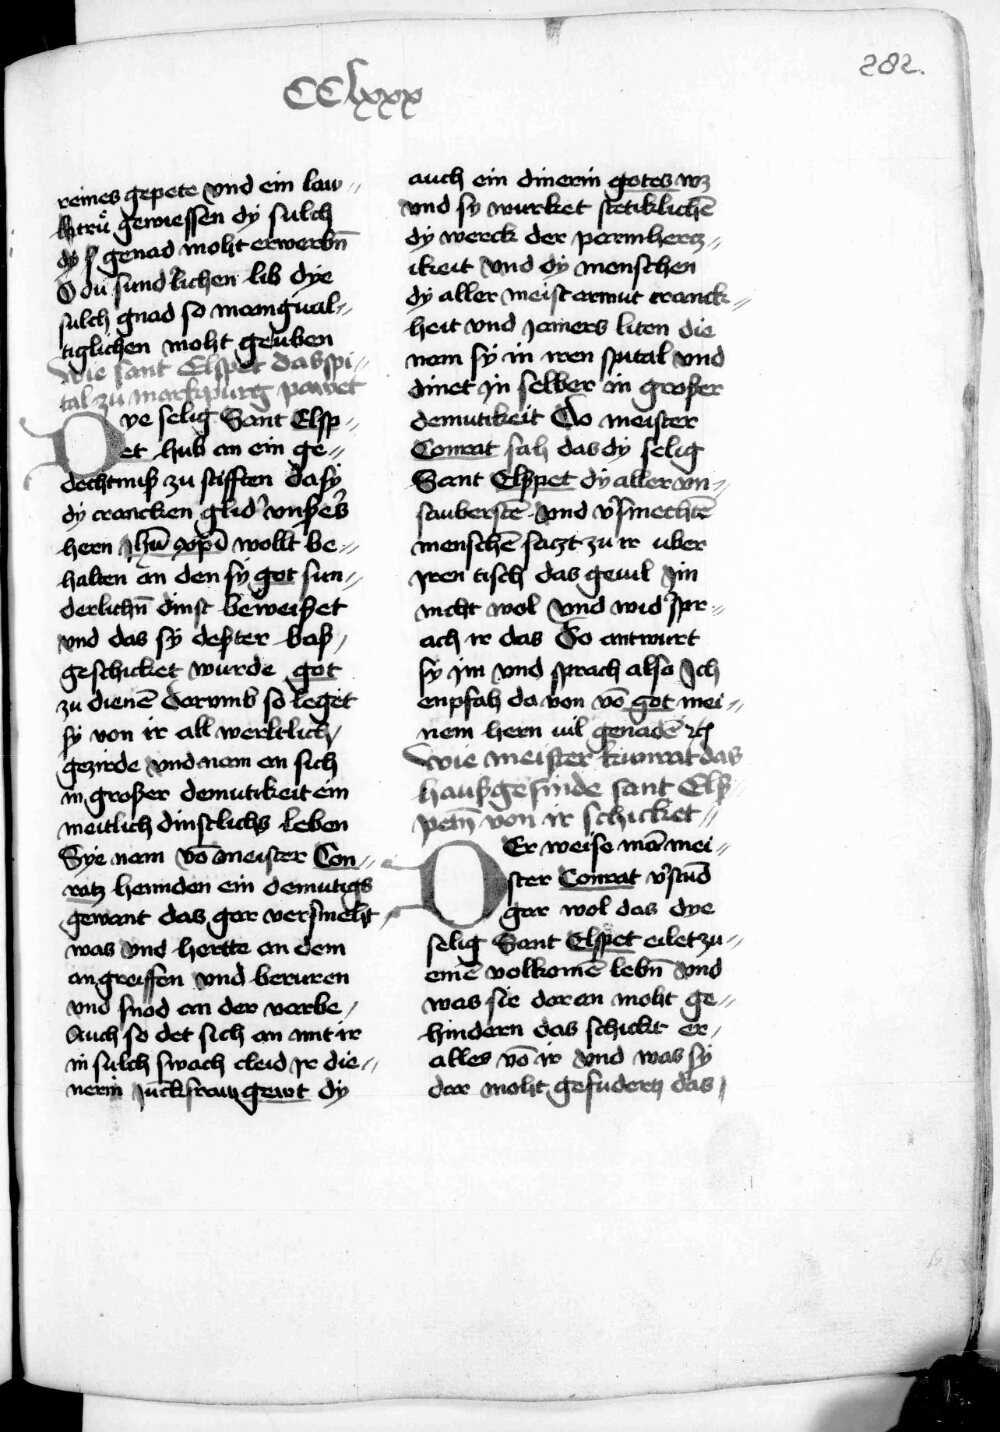 282.
CClxxx
reines gepete vnd ein law⸗
gewiessen dÿ sulch
genad moht erwerbn̄
O du sundˀlichen lib dye
sulch gnad so manigual⸗
tiglichen moht geuben
Wie sant Elspet das spi⸗
tal zu markpurg pawet
Dye selig Sant Elsp⸗
et hub an ein ge⸗
dechtniß zu stifften da sÿ
dÿ crancken glidˀ vnßeˀs
hern Jhū xp̄i wollt be⸗
halten an den sÿ got sun⸗
derlichn̄ dinst beweißet
vnd das sÿ dester baß
geschicket wurde got
zu dienē Dorvmb so leget
sÿ von ir all werltlich
gezirde vnd nam an sich
in großer demutikeit ein
meitlich dinstlichs leben
Sye nam vō meister Con⸗
ratz hennden ein demutigs
gewant das gar versmeht
was vnd hertte an dem
an greiffen vnd beruren
vnd snod an der varbe
Auch so det sich an mit ir
in sulch swach cleid Jr die⸗
nerin Juckfraw gewt dÿ
auch ein dinerin gotes wz
vnd sy wurket stetiklichē
dÿ werck der parmhertz⸗
ikeit vnd dÿ menschen
dÿ aller meist armut kranck⸗
heit vnd Jamers liten die
nam sÿ in iren spital vnd
dinet in selber in großer
demutikeit Do meister
Conrat sah das dÿ selig
Sant Elspet dÿ aller vn⸗
sauberstē vnd vˀsmechtē
menschē satzt zu ir uber
Jren tisch das geuil Jm
nicht wol vnd widˀspr⸗
ach ir das Do antwurt
sÿ Jm vnd sprach also Ich
enpfah da von vō got mei⸗
nem hern uil genadē
Wie meister kunrat das
haußgesinde sant Elß⸗
petn̄ von ir schicket
DEr weise mā mei⸗
ster Conrat vˀstūd
gar wol das dye
selig Sant Elspet eilet zu⸗
einē volkomē lebn̄ vnd
was sie dar an moht ge⸗
hindern das schickt er
alles vō ir vnd was sÿ
dar moht gefudern das